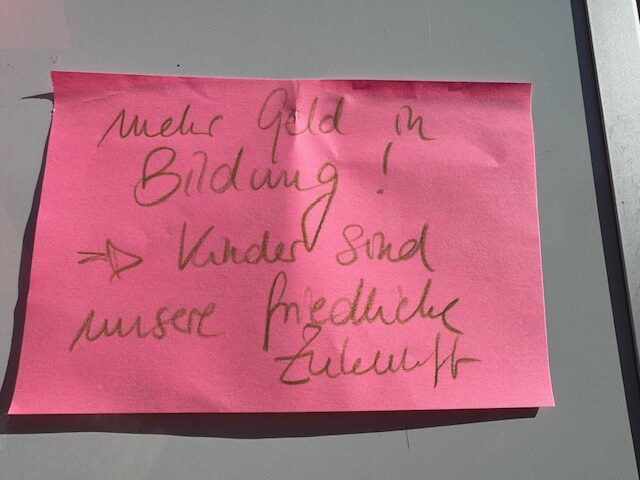 mehr Geld in
Bildung!
⇒ Kinder sind
unsere friedliche
Zukunft